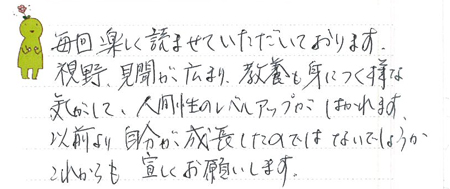 毎回楽しく読ませていただいております.
視野、見聞が広まり、教養も身につく様な
気がして、人間性のレベルアップが はかれます.
以前より自分が成長したのではないでしょうか
これからも 宜しくお願いします。